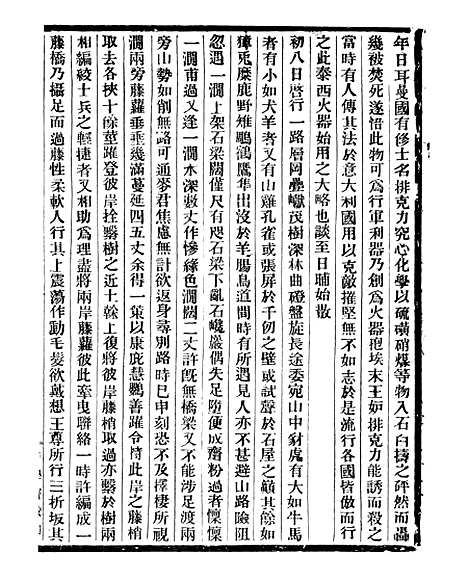 年日耳曼國有修士名排克力究心化學以硫磺硝煤等物入石臼擣之砰然而轟
幾被焚死遂悟此物可爲行軍利器乃創爲火器砲埃末王妒排克力能誘而殺之
當時有人傳其法於意大利國用以克敵摧堅無不如志於是流行各國皆做而行
之此泰西火器始用之大略也談至日晡始散
初八日啓行一路層岡疊巘茂樹深林曲磴盤旋長途委宛山中豺虎有大如牛馬
者有小如犬羊者又有山雞孔雀或張屏於千仞之壁或試聲於石屋之巔其餘如
獐兎麋鹿野雉鵰鶻鷹隼出沒於羊腸鳥道間時有所遇見人亦不甚避山路險阻
忽遇一澗上架石梁闊僅尺有咫石梁下亂石巉巖偶失足墮便成齏粉過者懍懍
一澗甫過又逢一澗水深數丈作慘綠色澗闊二丈許旣無橋梁又不能涉足渡兩
旁山勢如削無路可通麥君焦慮無計欲返身尋別路時已申刻恐不及擇棲所視
澗兩旁藤蘿垂垂幾滿蔓延四五丈余得一策以康庇慧鸚善躍令倚此岸之藤梢
取去各挾十餘莖躍登彼岸拴繫樹之近土榦上復將彼岸藤梢取過亦繫於樹兩
相編綾士兵之輕捷者又相助爲理盡將兩岸藤蘿彼此牽曳聯絡一時許編成一
藤橋乃攝足而過藤性柔軟人行其上震蕩作動毛髮欲戴想王尊所行三折坂其